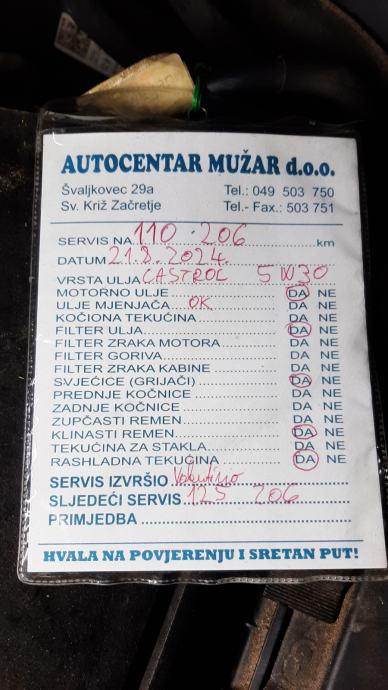 AUTOCENTAR MUŽAR d.o.o.
Švaljkovec 29a Tel.: 049 503 750
Sv. Križ Začretje Tel.- Fax.: 503 751
SERVIS NA 110 206 km
DATUM 21.8.2024.
VRSTA ULJA CASTROL 5W30
MOTORNO ULJE DA NE
ULJE MJENJAČA OK DA NE
KOČIONA TEKUĆINA DA NE
FILTER ULJA DA NE
FILTER ZRAKA MOTORA DA NE
FILTER GORIVA DA NE
FILTER ZRAKA KABINE DA NE
SVJEĆICE (GRIJAČI) DA NE
PREDNJE KOČNICE DA NE
ZADNJE KOČNICE DA NE
ZUPČASTI REMEN DA NE
KLINASTI REMEN DA NE
TEKUĆINA ZA STAKLA DA NE
RASHLADNA TEKUĆINA DA NE
SERVIS IZVRŠIO
SLJEDEĆI SERVIS 125 206
PRIMJEDBA
HVALA NA POVJERENJU I SRETAN PUT!